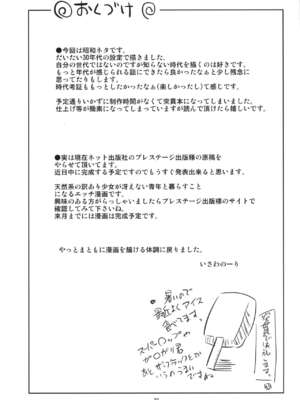 おくづけ
●今回は昭和ネタです。
だいたい30年代の設定で描きました。
自分の世代ではないのですが知らない時代を描くのは好きです。
もっと年代が感じられる話にできたら良かったなぁと少し残念に
思ってたりもします。
時代考証ももっとしたかったなぁ(楽しかった)て感じです。
予定通りいかずに制作時間がなくて突貫本になってしまいました。
仕上げ等が簡素になってしまっていますが読んで頂けたら嬉しいです。
●実は現在ネット出版社のプレステージ出版様の原稿を
やらせて頂いてます。
近日中に完成する予定ですのでもうすぐ発表出来ると思います。
天然系の訳あり少女が冴えない青年と暮らすこと
になるエッチ漫画です。
興味のある方がいらっしゃいましたらプレステージ出版様のサイトで
確認してみて下さいね。
来月までには漫画は完成予定です。
やっとまともに漫画を描ける体調に戻りました。
いさわのーり
暑いので
最近よくアイス
食べてます。
スーパーカップや
ガリガリ君